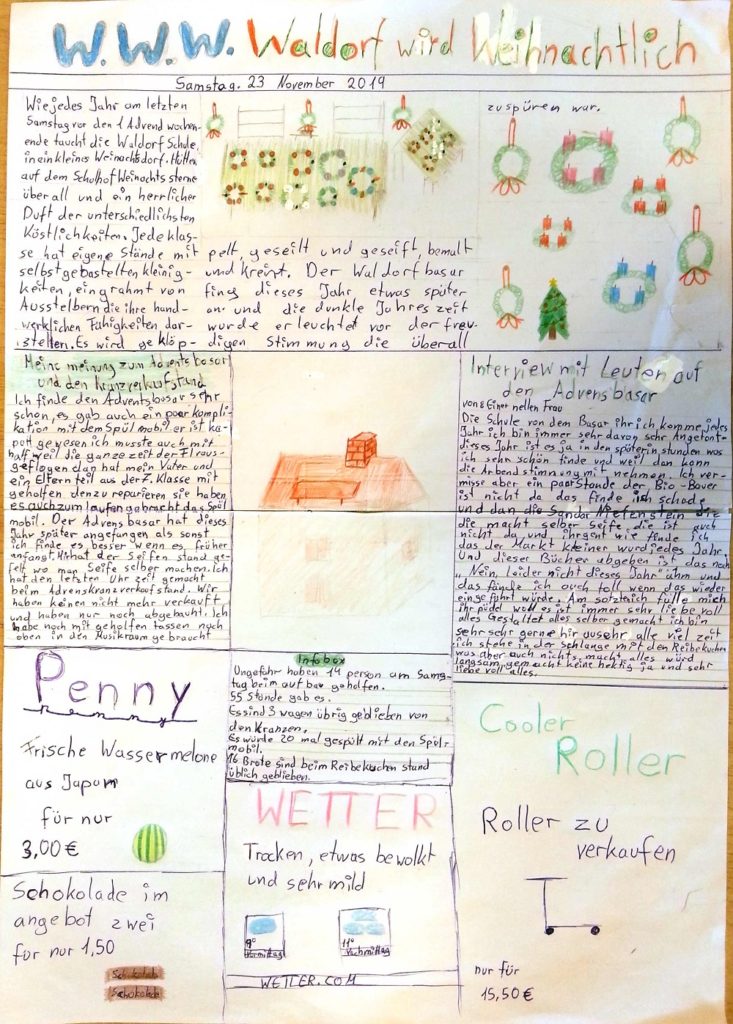 W.W.W. Waldorf wird Weihnachtlich
Samstag. 23 November 2019
Wie jedes Jahr am letzten
Samstag vor den 1 Advend wochen-
ende taucht die Waldorf Schule,
in ein kleines Weinachtsdorf. Hütten
auf dem Schulhof Weinachts sterne
überall und ein herrlicher
Duft der unterschiedlichsten
Köstlichkeiten. Jede klas-
se hat eigene Stände mit
selbstgebastelten kleinig-
keiten, eingrahmt von
Ausstellern die ihre hand-
werklichen Fähigkeiten dar-
stellen. Es wird geklöp-
pelt, geseilt und geseift, bemalt
und kreirt. Der Waldorf basar
fing dieses Jahr etwas später
an und die dunkle Jahreszeit
wurde erleuchtet vor der freu-
digen Stimmung die überall
zuspüren war.
Meine meinung zum Adventsbasar
und den Kranzverkaufstand
Ich finde den Adventsbasar sehr
schön, es gab auch ein paar kompli-
kation mit dem Spülmobil. er ist ka-
putt gewesen ich musste auch mit
half weil die ganze zeit der FI raus-
geflogen dan hat mein Vater und
ein Elfern teil aus der 7. Klasse mit
geholfen den zu reparieren sie haben
es auch zum laufen gebracht das Spül
mobil. Der Advens basar hat dieses
Jahr später angefangen als sonst
ich finde es besser wenn es früher
anfängt. Mir hat der Seifen stand ge-
felt wo man Seife selber machen. Ich
hat den letzten Uhr zeit gemacht
beim Advenskranzverkaufstand. Wir
haben keinen nicht mehr verkauft
und haben nur noch abgebaut. Ich
habe noch mit geholfen tassen noch
oben in den Musikraum gebraucht
Interview mit Leuten auf
den Advensbasar
von Einer nellen Frau
Die Schule von dem Basar ihr ich komme jedes
Jahr ich bin immer sehr davon sehr Angetont-
dieses Jahr ist es ja in den späterin stunden was
ich sehr schön finde und weil dan kann
die Arbend stimmung mit nehmen. Ich ver-
misse aber ein paar Stände der Bio-Bauer
ist nicht da das finde ich schade
und dan die Syndar die
die macht selber Seife, die ist auch
nicht da und ihrgent wie finde ich
das der Markt kleiner wurd jedes Jahr.
Und dieser Bücher abgeben ist das noch
„Nein, Leider nicht dieses Jahr" ähm und
das fände ich auch toll wenn das wieder
eingeführt würde. Am sotztlich fülle mich
ihr püdel woll es ist immer sehr liebe voll
alles Gestaltet alles selber gemacht ich bin
sehr sehr gerne hir aus ehr alle viel zeit
ich stehe in der Schlange mit den Reibekuchen
was aber auch nichts macht alles würd
langsam gemacht keine hektig ja und sehr
liebe voll alles.
Penny
Penny
Frische Wassermelone
aus Japan
für nur
3,00 €
Infobox
Ungefähr haben 14 person am Sams-
tag beim auf bau geholfen.
55 Stände gab es.
Es sind 3 wagen übrig geblieben von
den Kränzen.
Es würde 20 mal gespült mit den Spül-
mobil.
16 Brote sind beim Reibekuchen stand
üblich geblieben.
Cooler
Roller
Roller zu
verkaufen
nur für
15,50 €
WETTER
Trocken, etwas bewolkt
und sehr mild
9°
Vormittag
11°
Nachmittag
WETTER.COM
Schokolade im
angebot zwei
für nur 1,50
Schokolade
Schokolade